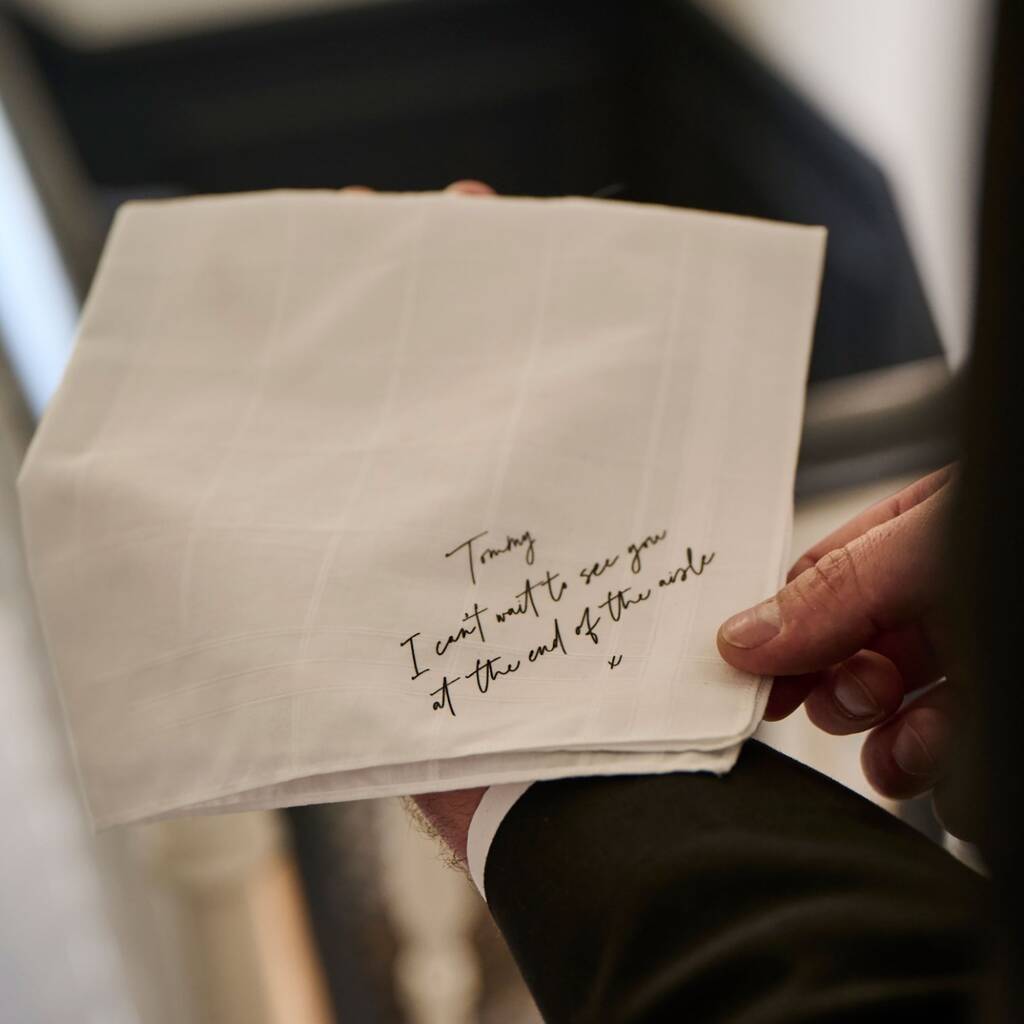 Tommy
I can't wait to see you
at the end of the aisle
x